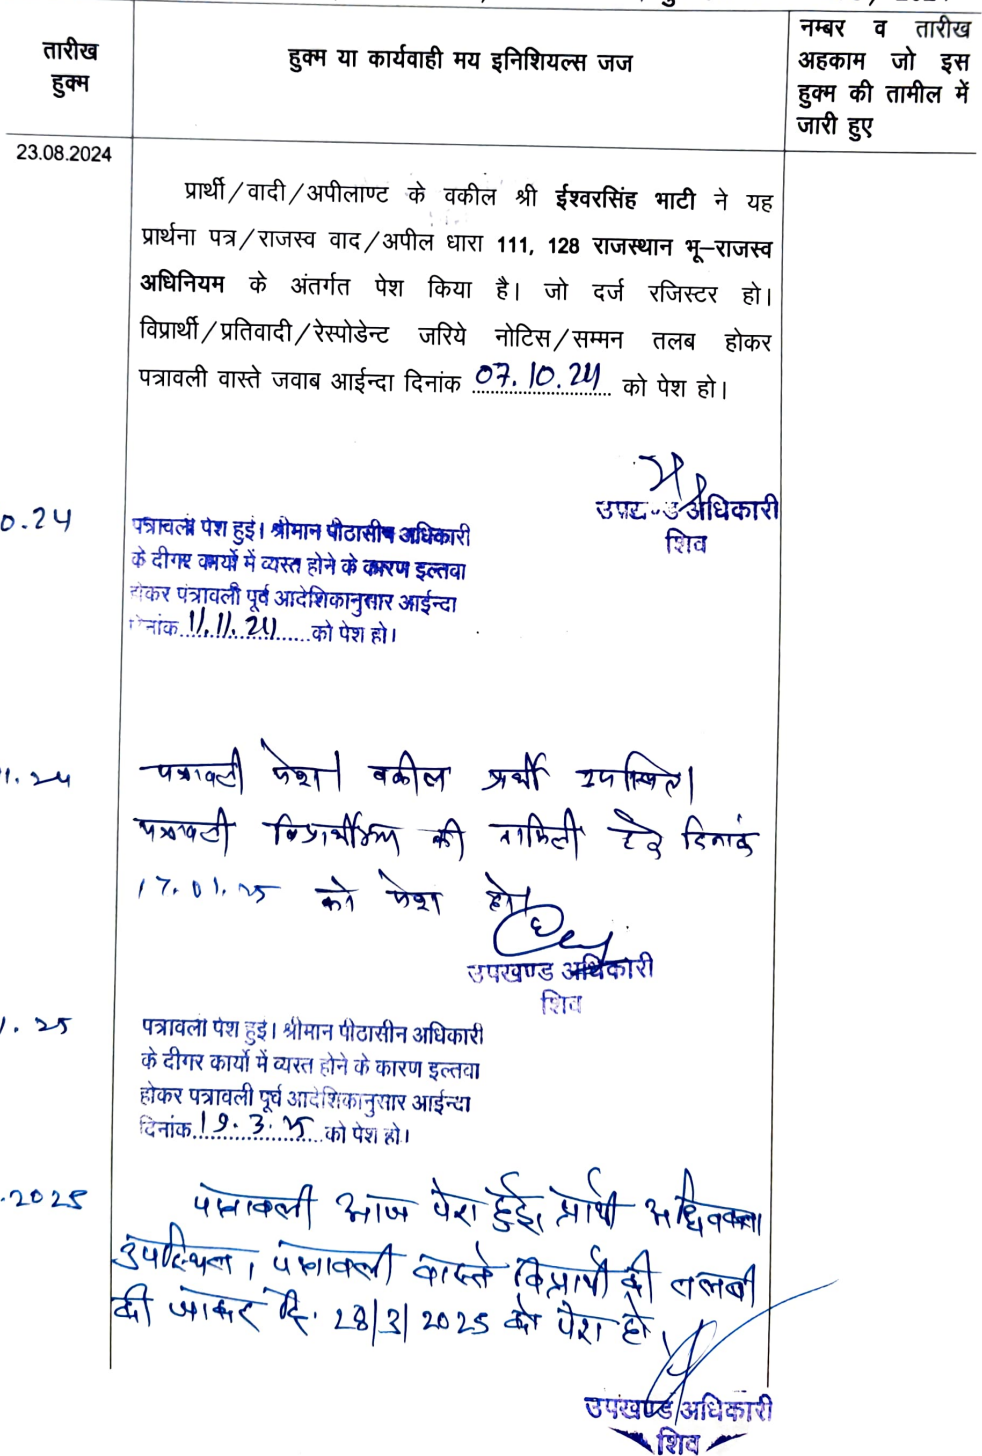 तारीख
हुक्म
हुक्म या कार्यवाही मय इनिशियल्स जज
नम्बर व तारीख
अहकाम जो इस
हुक्म की तामील में
जारी हुए
23.08.2024
प्रार्थी/वादी/अपीलाण्ट के वकील श्री ईश्वरसिंह भाटी ने यह
प्रार्थना पत्र/राजस्व वाद/अपील धारा 111, 128 राजस्थान भू–राजस्व
अधिनियम के अंतर्गत पेश किया है। जो दर्ज रजिस्टर हो।
विप्रार्थी/प्रतिवादी/रेस्पोडेन्ट जरिये नोटिस/सम्मन तलब होकर
पत्रावली वास्ते जवाब आईन्दा दिनांक 07.10.24 को पेश हो।
उपखण्ड अधिकारी
शिव
0.24
पत्रावली पेश हुई। श्रीमान पीठासीन अधिकारी
के दीगर कार्यो में व्यस्त होने के कारण इल्तवा
होकर पत्रावली पूर्व आदेशिकानुसार आईन्दा
दिनांक 11.11.24 को पेश हो।
1.24
पत्रावली पेश। वकील प्रार्थी उपस्थित।
पत्रावली विप्रार्थीगण की तामिली हेतु दिनांक
17.01.25 को पेश हो।
उपखण्ड अधिकारी
शिव
1.25
पत्रावली पेश हुई। श्रीमान पीठासीन अधिकारी
के दीगर कार्यो में व्यस्त होने के कारण इल्तवा
होकर पत्रावली पूर्व आदेशिकानुसार आईन्दा
दिनांक 19.3.25 को पेश हो।
.2025
पत्रावली आज पेश हुई, प्रार्थी अधिवक्ता
उपस्थित, पत्रावली वास्ते विप्रार्थी की तलबी
की जाकर दि. 28/3/2025 को पेश हो,
उपखण्ड अधिकारी
शिव